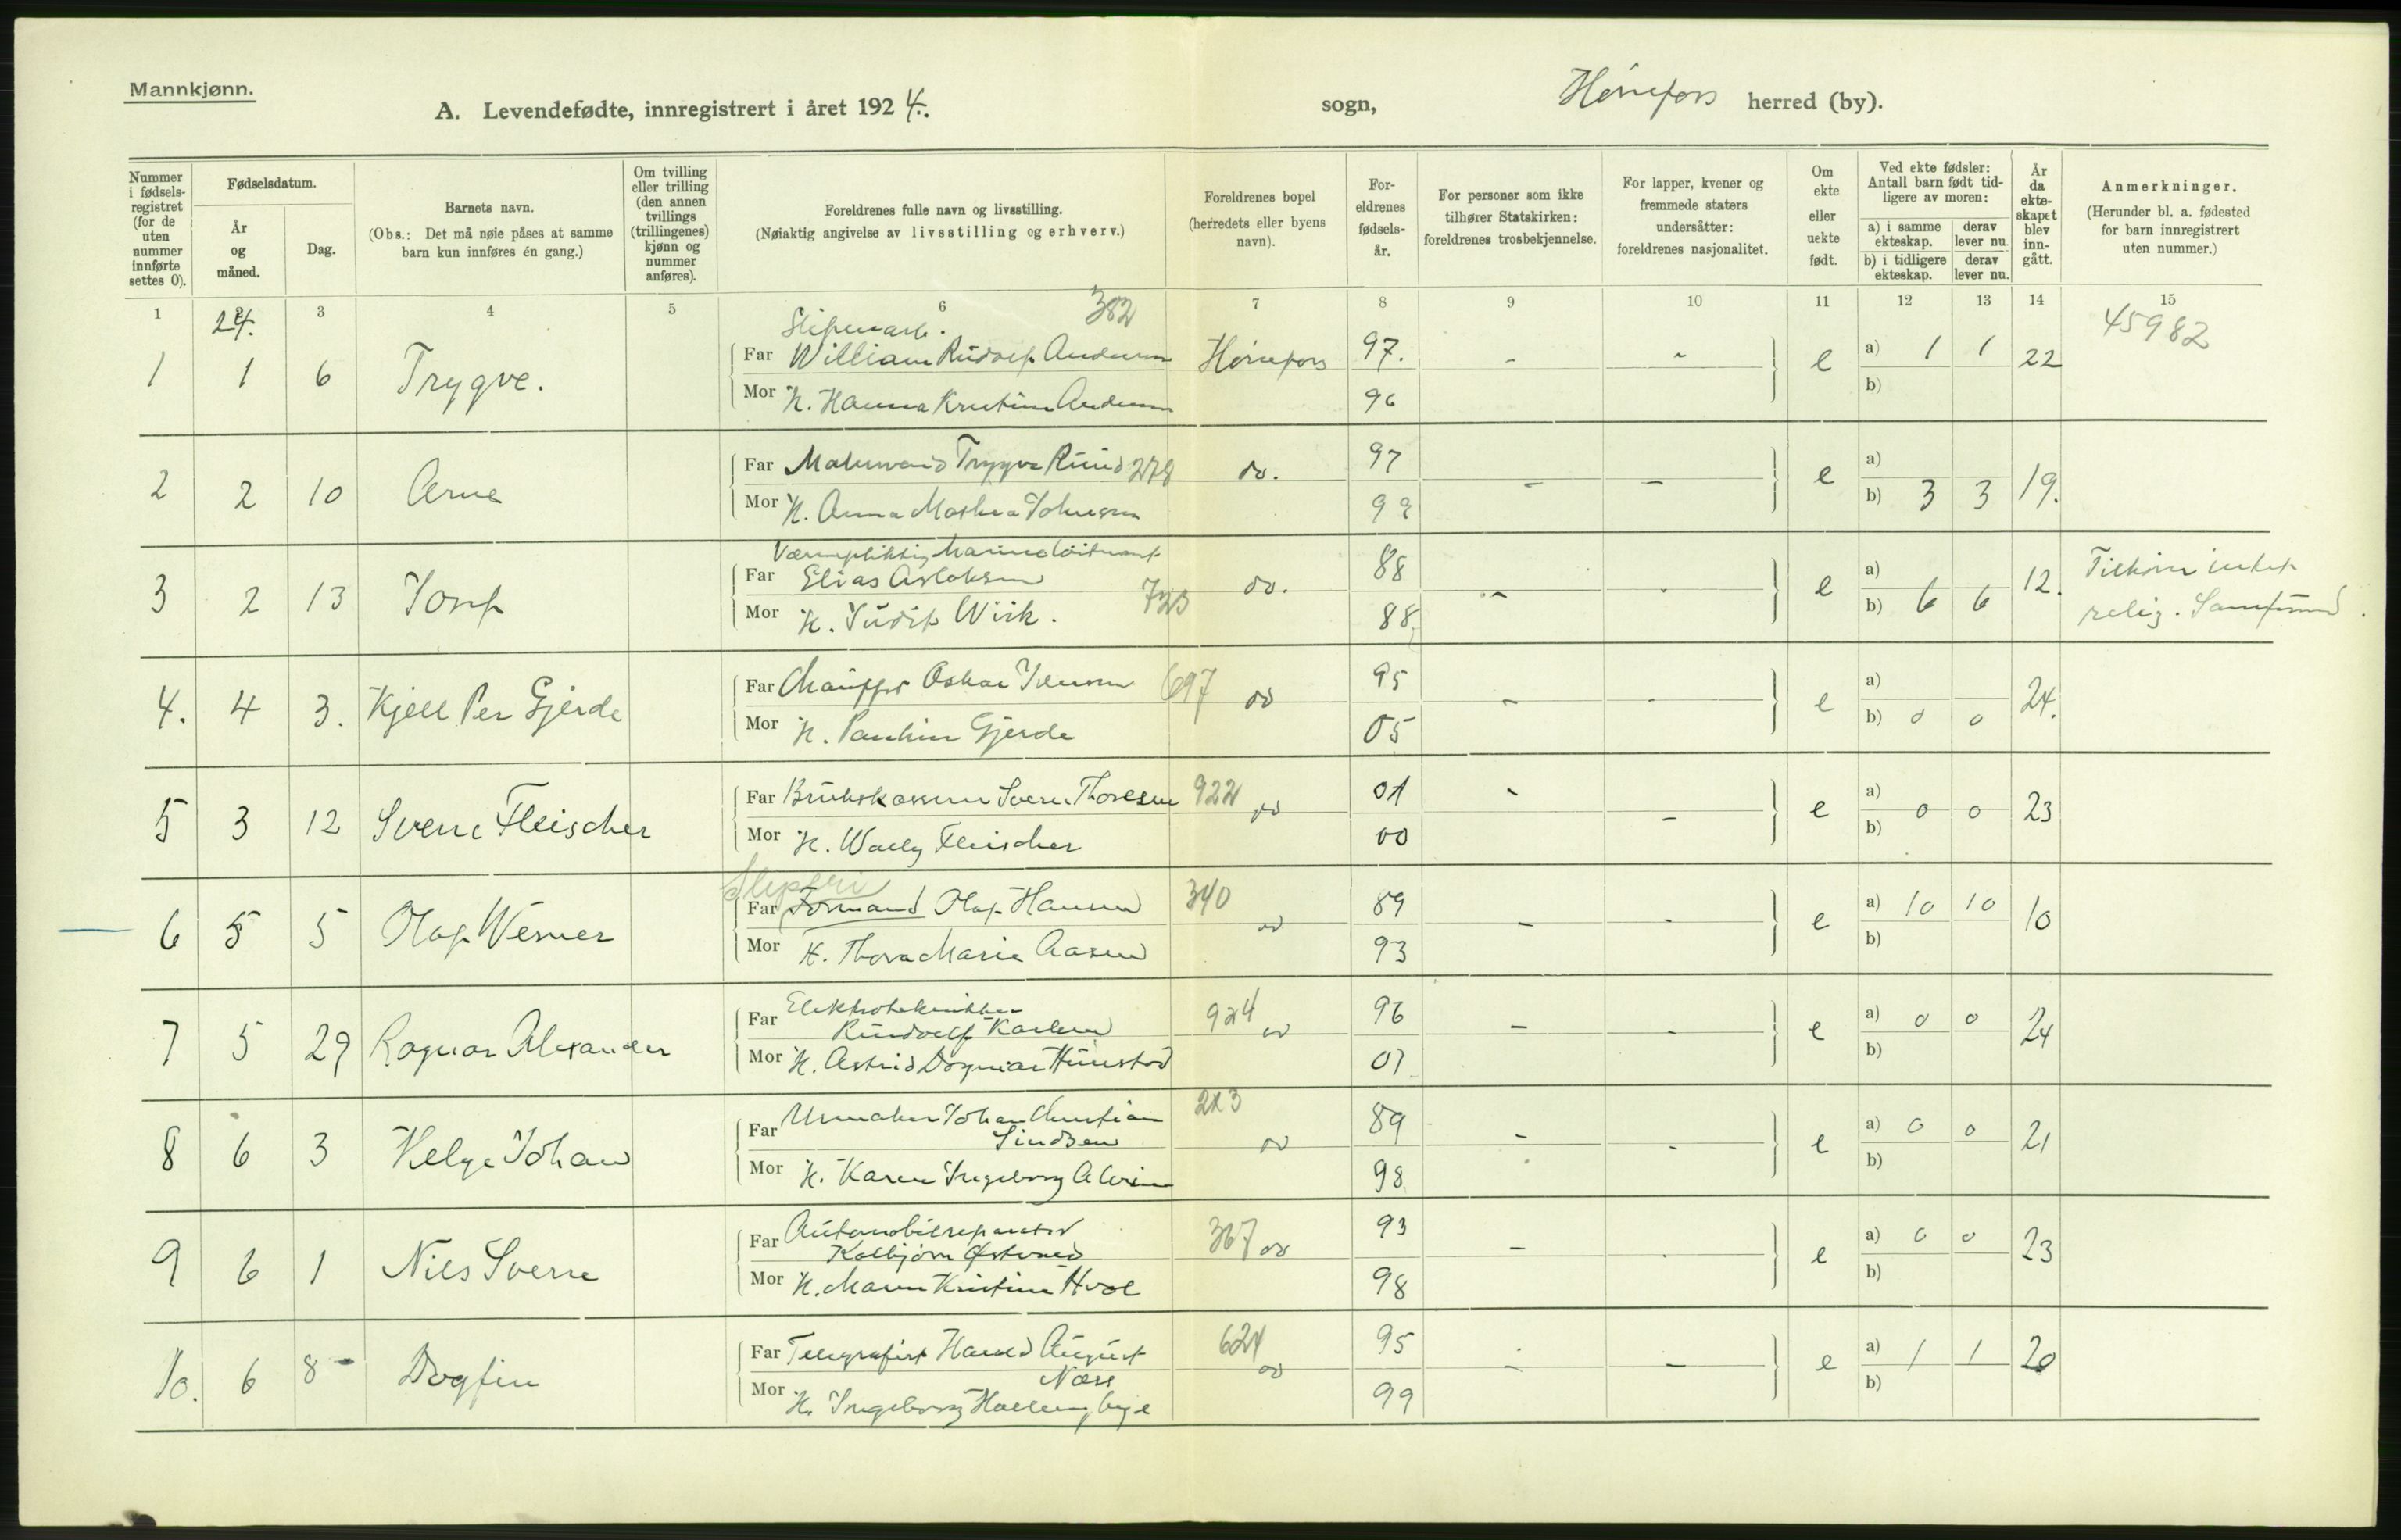 Mannkjønn.
A. Levendefødte, innregistrert i året 1924. sogn, Hønefoss herred (by).
Nummer i fødsels-registret (for de uten nummer innførte settes 0).
Fødselsdatum.
År og måned.
Dag.
Barnets navn.
(Obs.: Det må nøie påses at samme barn kun innføres én gang.)
Om tvilling eller trilling (den annen tvillings (trillingenes) kjønn og nummer anføres).
Foreldrenes fulle navn og livsstilling.
(Nøiaktig angivelse av livsstilling og erhverv.)
Foreldrenes bopel (herredets eller byens navn).
For-eldrenes fødsels-år.
For personer som ikke tilhører Statskirken: foreldrenes trosbekjennelse.
For lapper, kvener og fremmede staters undersåtter: foreldrenes nasjonalitet.
Om ekte eller uekte født.
Ved ekte fødsler: Antall barn født tid-ligere av moren:
a) i samme ekteskap. derav lever nu.
b) i tidligere ekteskap. derav lever nu.
År da ekte-skapet blev inn-gått.
Anmerkninger.
(Herunder bl. a. fødested for barn innregistrert uten nummer.)
1 2 3 4 5 6 7 8 9 10 11 12 13 14 15
24. 382 45982
Sliperiarb.
1 1 6 Trygve. Far William Rudolf Andersen Hønefoss 97. - - e a) 1 1 22
Mor H. Hanna Kristine Andersen 96 b)
2 2 10 Arne Far Trygve Ruud 278 do. 97 - - e a)
Mor H. Anna Mathea Johnsen 99 b) 3 3 19.
Vernepliktig Marineløitnant
3 2 13 Far Elias Aslaksen 723 do. 88 - - e a) 12. Tilhører intet
Mor H. Judit Wiik. 88 b) 6 6 relig. Samfund.
4. 4 3. Kjell Per Gjerde Far Chauffør Oskar Iversen 697 do 95 - - e a) 24.
Mor H. Pauline Gjerde 05 b) 0 0
5 3 12 Sverre Fleischer Far Sverre Thoresen 922 do 01 - - e a) 0 0 23
Mor H. Wally Fleischer 00 b)
Sliperi
6 5 5 Olaf Werner Far Formand Olaf Hansen 340 do 89 - - e a) 10 10 10
Mor H. Thora Marie Aasen 93 b)
7 5 29 Ragnar Alexander Far Elektrotekniker 924 do 96 - - e a) 0 0 24
Rudolf Karlsen
Mor H. Astrid Dagmar 01 b)
8 6 3 Helge Johan Far Urmaker Johan Christian 213 do 89 - - e a) 0 0 21
Lindsen
Mor H. Karen Ingeborg 98 b)
9 6 1 Nils Sverre Far Automobilreparatør 367 do 93 - - e a) 0 0 23
Kolbjørn Østvold
Mor H. Maren Kristine Hval 98 b)
10. 6 8 Dagfin Far Telegrafist Harald August 624 do 95 - - e a) 1 1 20
Næss
Mor H. Ingeborg Hallingbye 99 b)